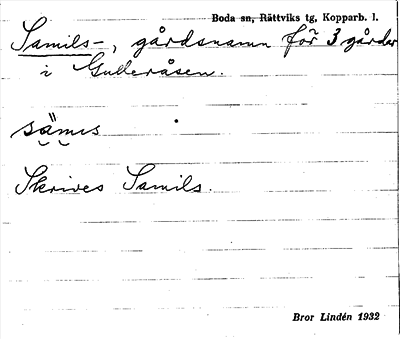 Boda sn, Rättviks tg, Kopparb. l.
Samils-, gårdsnamn för 3 gårdar
i Gulleråsen.
Skrives Samils.
Bror Lindén 1932